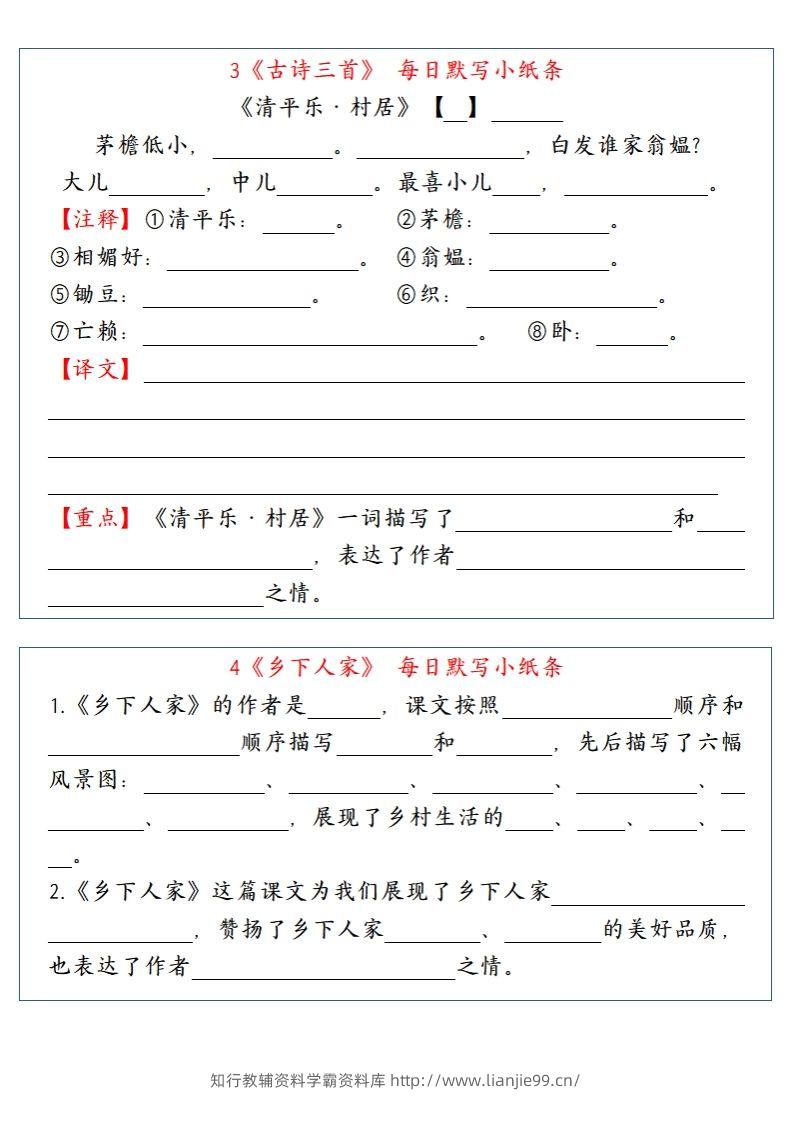 3《古诗三首》 每日默写小纸条
《清平乐·村居》【__】______
茅檐低小，__________。______________，白发谁家翁媪?
大儿________，中儿________。最喜小儿____，____________。
【注释】①清平乐：______。 ②茅檐：__________。
③相媚好：________________。 ④翁媪：__________。
⑤锄豆：______________。 ⑥织：________________。
⑦亡赖：____________________________。 ⑧卧：______。
【译文】__________________________________________________
__________________________________________________________
__________________________________________________________
________________________________________________________
【重点】《清平乐·村居》一词描写了__________________和____
______________________，表达了作者________________________
__________________之情。
4《乡下人家》 每日默写小纸条
1.《乡下人家》的作者是______，课文按照______________顺序和
________________顺序描写________和________，先后描写了六幅
风景图：__________、__________、__________、__________、__
________、__________，展现了乡村生活的____、____、____、__
__。
2.《乡下人家》这篇课文为我们展现了乡下人家________________
____________，赞扬了乡下人家________、________的美好品质，
也表达了作者______________________之情。
知行教辅资料学霸资料库 http://www.lianjie99.cn/